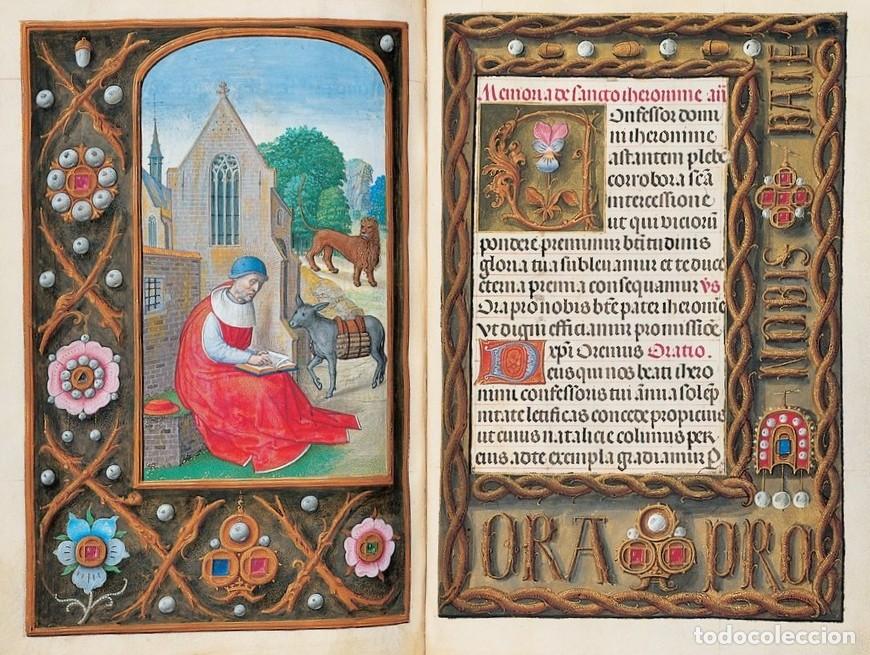 Memoria de sancto iheronime añ
Confessor domi
ni iheronime
astantem plebē
corrobora scā
intercessione
ut qui viciorū
pondere premimur btītudinis
gloria tua subleuamur et te duce
eterna premia consequamur v̄s
Ora pro nobis bt̄e pater iheronie
Vt digni efficiamur promissiōe
xp̄i Oremus Oratio.
Deus qui nos beati ihero
nimi confessoris tui annua solēp
nitate letificas concede propicius
ut cuius natalicie colimus per
eius ad te exempla gradiamur P
ORA PRO
NOBIS
BATE
todocoleccion